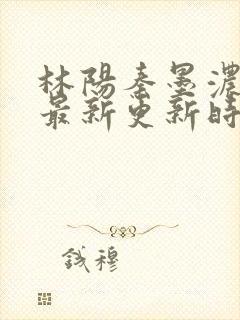 林陽秦墨濃
最新更新時
錢穆